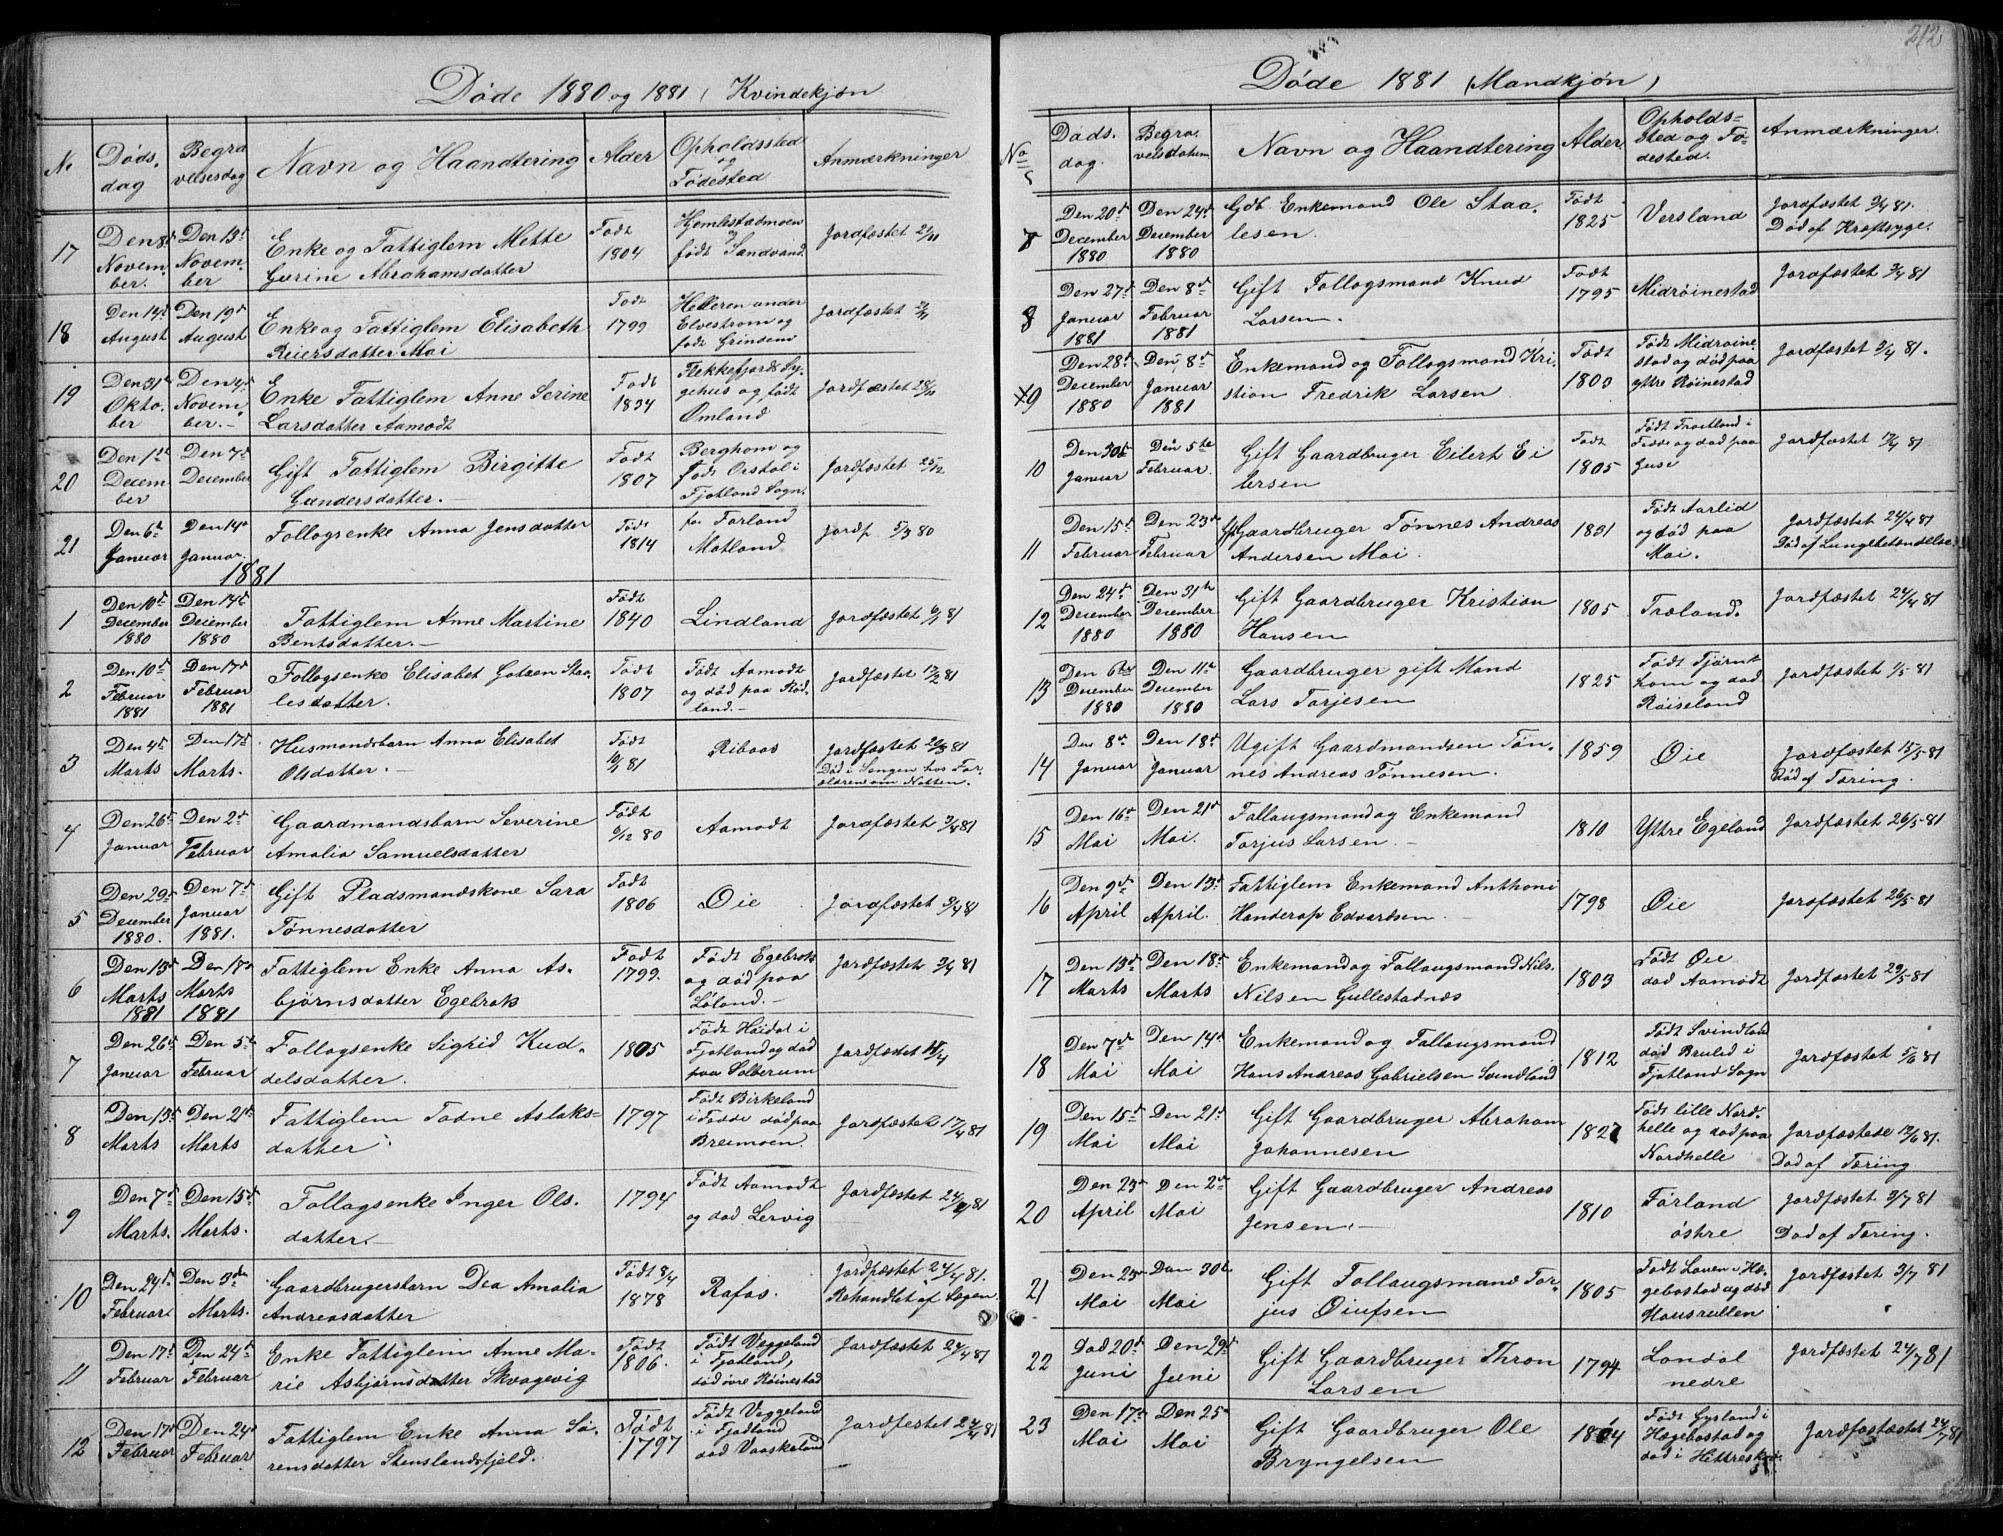 Døde 1880 og 1881 ( Kvindekjøn
No
Døds-
dag
Begra
velsesdag
Navn og Haandtering
Alder
Opholdssted
og
Fødested
Anmærkninger
17
Den 8de
Novem
ber.
Den 13de
Novem
ber
Enke og Fattiglem Mette
Gurine Abrahamsdatter
Født
1804
Hjemlestadmoen
og
født Sandvand
Jordfæstet 21/11
18
Den 14de
August
Den 19de
August
Enke og Fattiglem Elisabeth
Reiersdatter Moi
Født
1799
Helleren under
Elvestrøm og
født Grindem
Jordfæstet
19
Den 31te
Okto.
ber
Den 4de
Novem
ber.-
Enke Fattiglem Anne Serine
Larsdatter Aamodt
Født
1834
Flekkefjords Sy-
gehus og født
Omland
Jordfæstet 28/11
20
Den 1ste
Decem
ber
Den 7de
December
Gift Fattiglem Birgitte
Gundersdatter.-
Født
1807
Berghom og
født Orstol i
Fjotland Sogn.
Jordfæstet 25/12
21
Den 6te
Januar
Den 14de
Januar.
Follogsenke Anna Jensdatter
Født
1814
før Forland
Motland
Jordf 5/3 80
1881
1
Den 10de
December
1880
Den 14de
December
1880
Fattiglem Anne Martine
Bentsdatter.-
Født
1840
Lindland
Jordfæstet 6/1 81
2
Den 10de
Februar
1881
Den 17de
Februar
1881
Follogsenke Elisabet Gotzen Staa-
lesdatter.
Født
1807
Født Aamodt
og død paa Rød-
land.-
Jordfæstet 17/2 81
3
Den 4de
Marts
Den 17de
Marts.
Husmandsbarn Anna Elisabet
Olsdatter.-
Født
10/1 81
Riboas
Jordfæstet 20/3 81
Død i Sengen hos For-
ældrene om Natten.
4
Den 26de
Januar
Den 2den
Februar
Gaardmandsbarn Severine
Amalia Samuelsdatter
Født
6/12 80
Aamodt
Jordfæstet 3/4 81
5
Den 29de
December
1880.
Den 7de
Januar
1881.
Gift Pladsmandskone Sara
Tønnesdatter
Født
1806
Øie
Jordfæstet 3/4 81
6
Den 13de
Marts
1881
Den 17de
Marts
1881
Fattiglem Enke Anna As-
bjørnsdatter Egebrok
Født
1799.
Født Egebrok
og død paa
Løland.-
Jordfæstet 3/4 81
7
Den 26de
Januar
Den 5te
Februar
Follogsenke Sigrid Kud-
delsdatter.
1805
Født Høidal i
Fjotland og død
paa Solberum
Jordfæstet 18/4
8
Den 13de
Marts
Den 21de
Marts
Fattiglem Todne Aslaks-
datter
1797
Født Birkeland
i Fedde død paa
Breimoen.
Jordfæstet 17/4 81
9
Den 7de
Marts.
Den 15de
Marts.
Follogsenke Inger Ols-
datter.-
1794
Født Aamodt
og død Lervig
Jordfæstet 24/4 81
10
Den 24de
Februar.
Den 3die
Marts.
Gaardbrugersbarn Dea Amalia
Andreasdatter
Født 8/4
1878
Rafos.
Jordfæstet 24/4 81.
Behandlet af Lægen.
11
Den 17de
Februar
Den 24de
Februar
Enke Fattiglem Anne Ma-
rie Asbjørnsdatter Skvagevig
Født
1806.
Født Veggeland
i Fjotland,
død øvre Røinestad
Jordfæstet 24/4 81
12
Den 17de
Februar
Den 24de
Februar
Fattiglem Enke Anna Sø-
rensdatter Stenslandsfjeld.
Født
1797
Født Veggeland
i Fjotland
død Vaaskeland
Jordfæstet 24/4 81
212
Døde 1881 (Mandkjøn)
No
Døds.
dag.
Begra.
velsesdatum
Navn og Haandtering
Alder.
Opholds-
sted og Fø-
dested.
Anmærkninger.
7
Den 20de
December
1880
Den 24de
December
1880
Gdb Enkemand Ole Staa-
lesen.
Født
1825
Versland
Jordfæstet 3/4 81.
Død af Kræftsyge.
8
Den 27de
Januar
1881
Den 8de
Februar
1881
Gift Follogsmand Knud
Larsen.
Født
1795
Midrøinestad
Jordfæstet 3/4 81
x9
Den 28de
December
1880
Den 8de
Januar
1881
Enkemand og Follogsmand Kri-
stian Fredrik Larsen
Født
1803
Født Midrøine
stad og død paa
ytre Røinestad
Jordfæstet 3/4 81.
10
Den 30te
Januar
Den 5te
Februar.
Gift Gaardbruger Eilert Ei
lersen
Født
1805
Født Frøstland i
Fedde og død paa
Guse
Jordfæstet 17/4 81
11
Den 15de
Februar
Den 23de
Februar
Gft Gaardbruger Tønnes Andreas
Andersen Moi.
1831
Født Aarlid
og død paa
Moi.
Jordfæstet 24/4 81
Død af Lungebetændelse.
12
Den 24de
December
1880
Den 31te
December
1880
Gift Gaardbruger Kristian
Hansen
1805
Træland.
Jordfæstet 24/4 81
13
Den 6te
December
1880
Den 11te
December
1880
Gaardbruger gift Mand
Lars Torjesen
1825
Født Tjørn-
hom og død
Røiseland
Jordfæstet 1/5 81
14
Den 8de
Januar
Den 18de
Januar
Ugift Gaardmandsøn Tøn-
nes Andreas Tønnesen.
1859
Øie
Jordfæstet 15/5 81
Død af Tæring.
15
Den 16de
Mai
Den 21de
Mai.
Follaugsmand og Enkemand
Torjus Larsen.-
1810
Yttre Egeland
Jordfæstet 26/5-81
16
Den 9de
April
Den 13de
April.
Fattiglem Enkemand Anthoni
Handerap Edvardsen.
1798
Øie
Jordfæstet 26/5-81
17
Den 13de
Marts
Den 18de
Marts
Enkemand og Follaugsmand Nils.
Nilsen Gullestadnæs
1803
Født Øie
død Aamodt
Jordfæstet 29/5 81
18
Den 7de
Mai
Den 14de
Mai
Enkemand og Follaugsmand
Hans Andreas Gabrielsen Svindland
1812
Født Svindland
død Brulid i
Fjotland Sogn
Jordfæstet 5/6 81
19
Den 15de
Mai
Den 21de
Mai
Gift Gaardbruger Abraham
Johannesen
1827
Født lille Nord-
helle og død paa
Nordhelle
Jordfæstede 12/6 81.
Død af Tæring
20
Den 23de
April
Den 2den
Mai
Gift Gaardbruger Andreas
Jensen.-
1810
Førland
østre
Jordfæstet 3/7 81
Død af Tæring.
21
Den 23de
Mai
Den 30te
Mai
Gift Follaugsmand Tor-
jus Oiufsen
1805
Født Lauen i Hæ-
gebostad og død
Hausrullen
Jordfæstet 3/7 81
22
Død 20de
Juni
Den 29de
Juni
Gift Gaardbruger Thron
Larsen
1794
Londal
nedre
Jordfæstet 24/7 81
23
Den 17de
Mai
Den 25de
Mai
Gift Gaardbruger Ole
Bryngelsen
1804
Født Gysland i
Hægebostad og
død i Hitterskoie
Jordfæstet 24/7 81